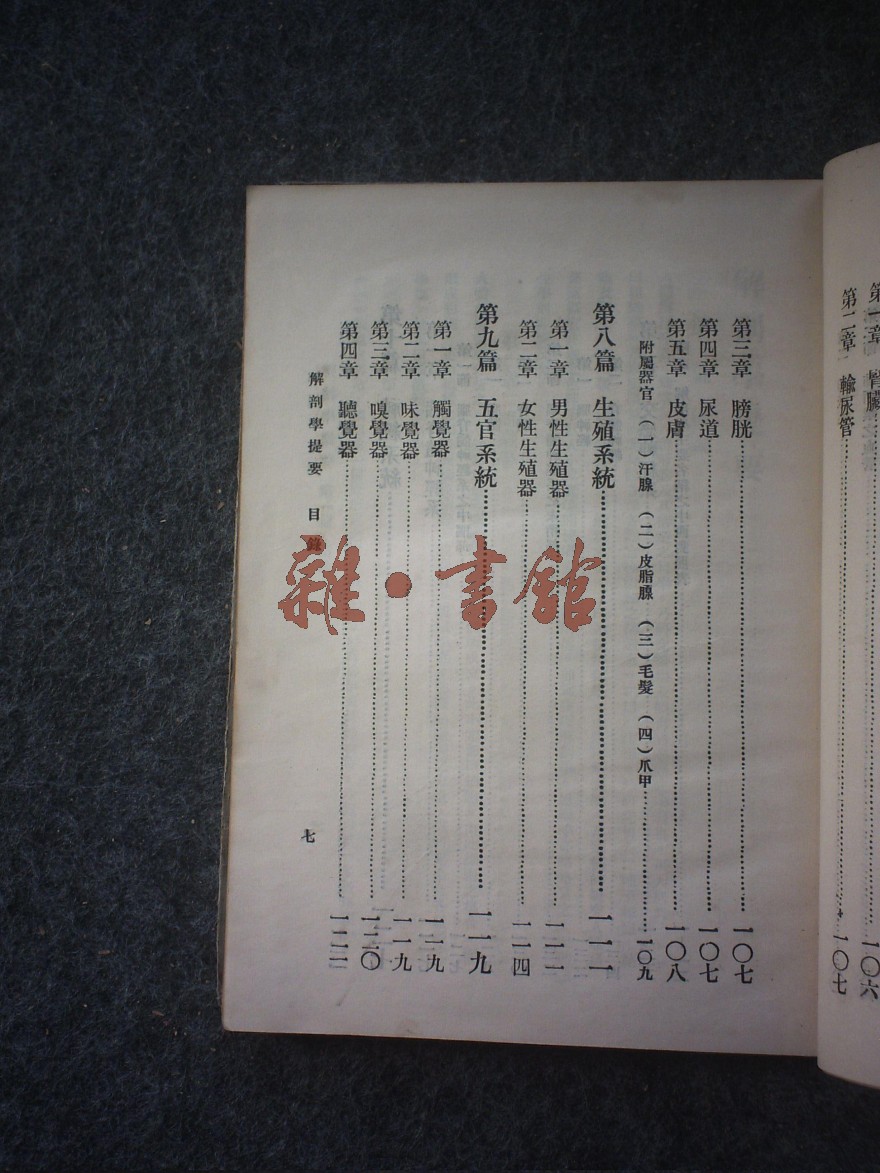 第一章 腎臟……一〇六
第二章 輸尿管……一〇七
第三章 膀胱……一〇七
第四章 尿道……一〇七
第五章 皮膚……一〇八
附屬器官 (一)汗腺 (二)皮脂腺 (三)毛髮 (四)爪甲……一〇九
第八篇 生殖系統……一一一
第一章 男性生殖器……一一一
第二章 女性生殖器……一一四
第九篇 五官系統……一一九
第一章 觸覺器……一一九
第二章 味覺器……一一九
第三章 嗅覺器……一二〇
第四章 聽覺器……一二二
解剖學提要 目錄
七
雜·書館